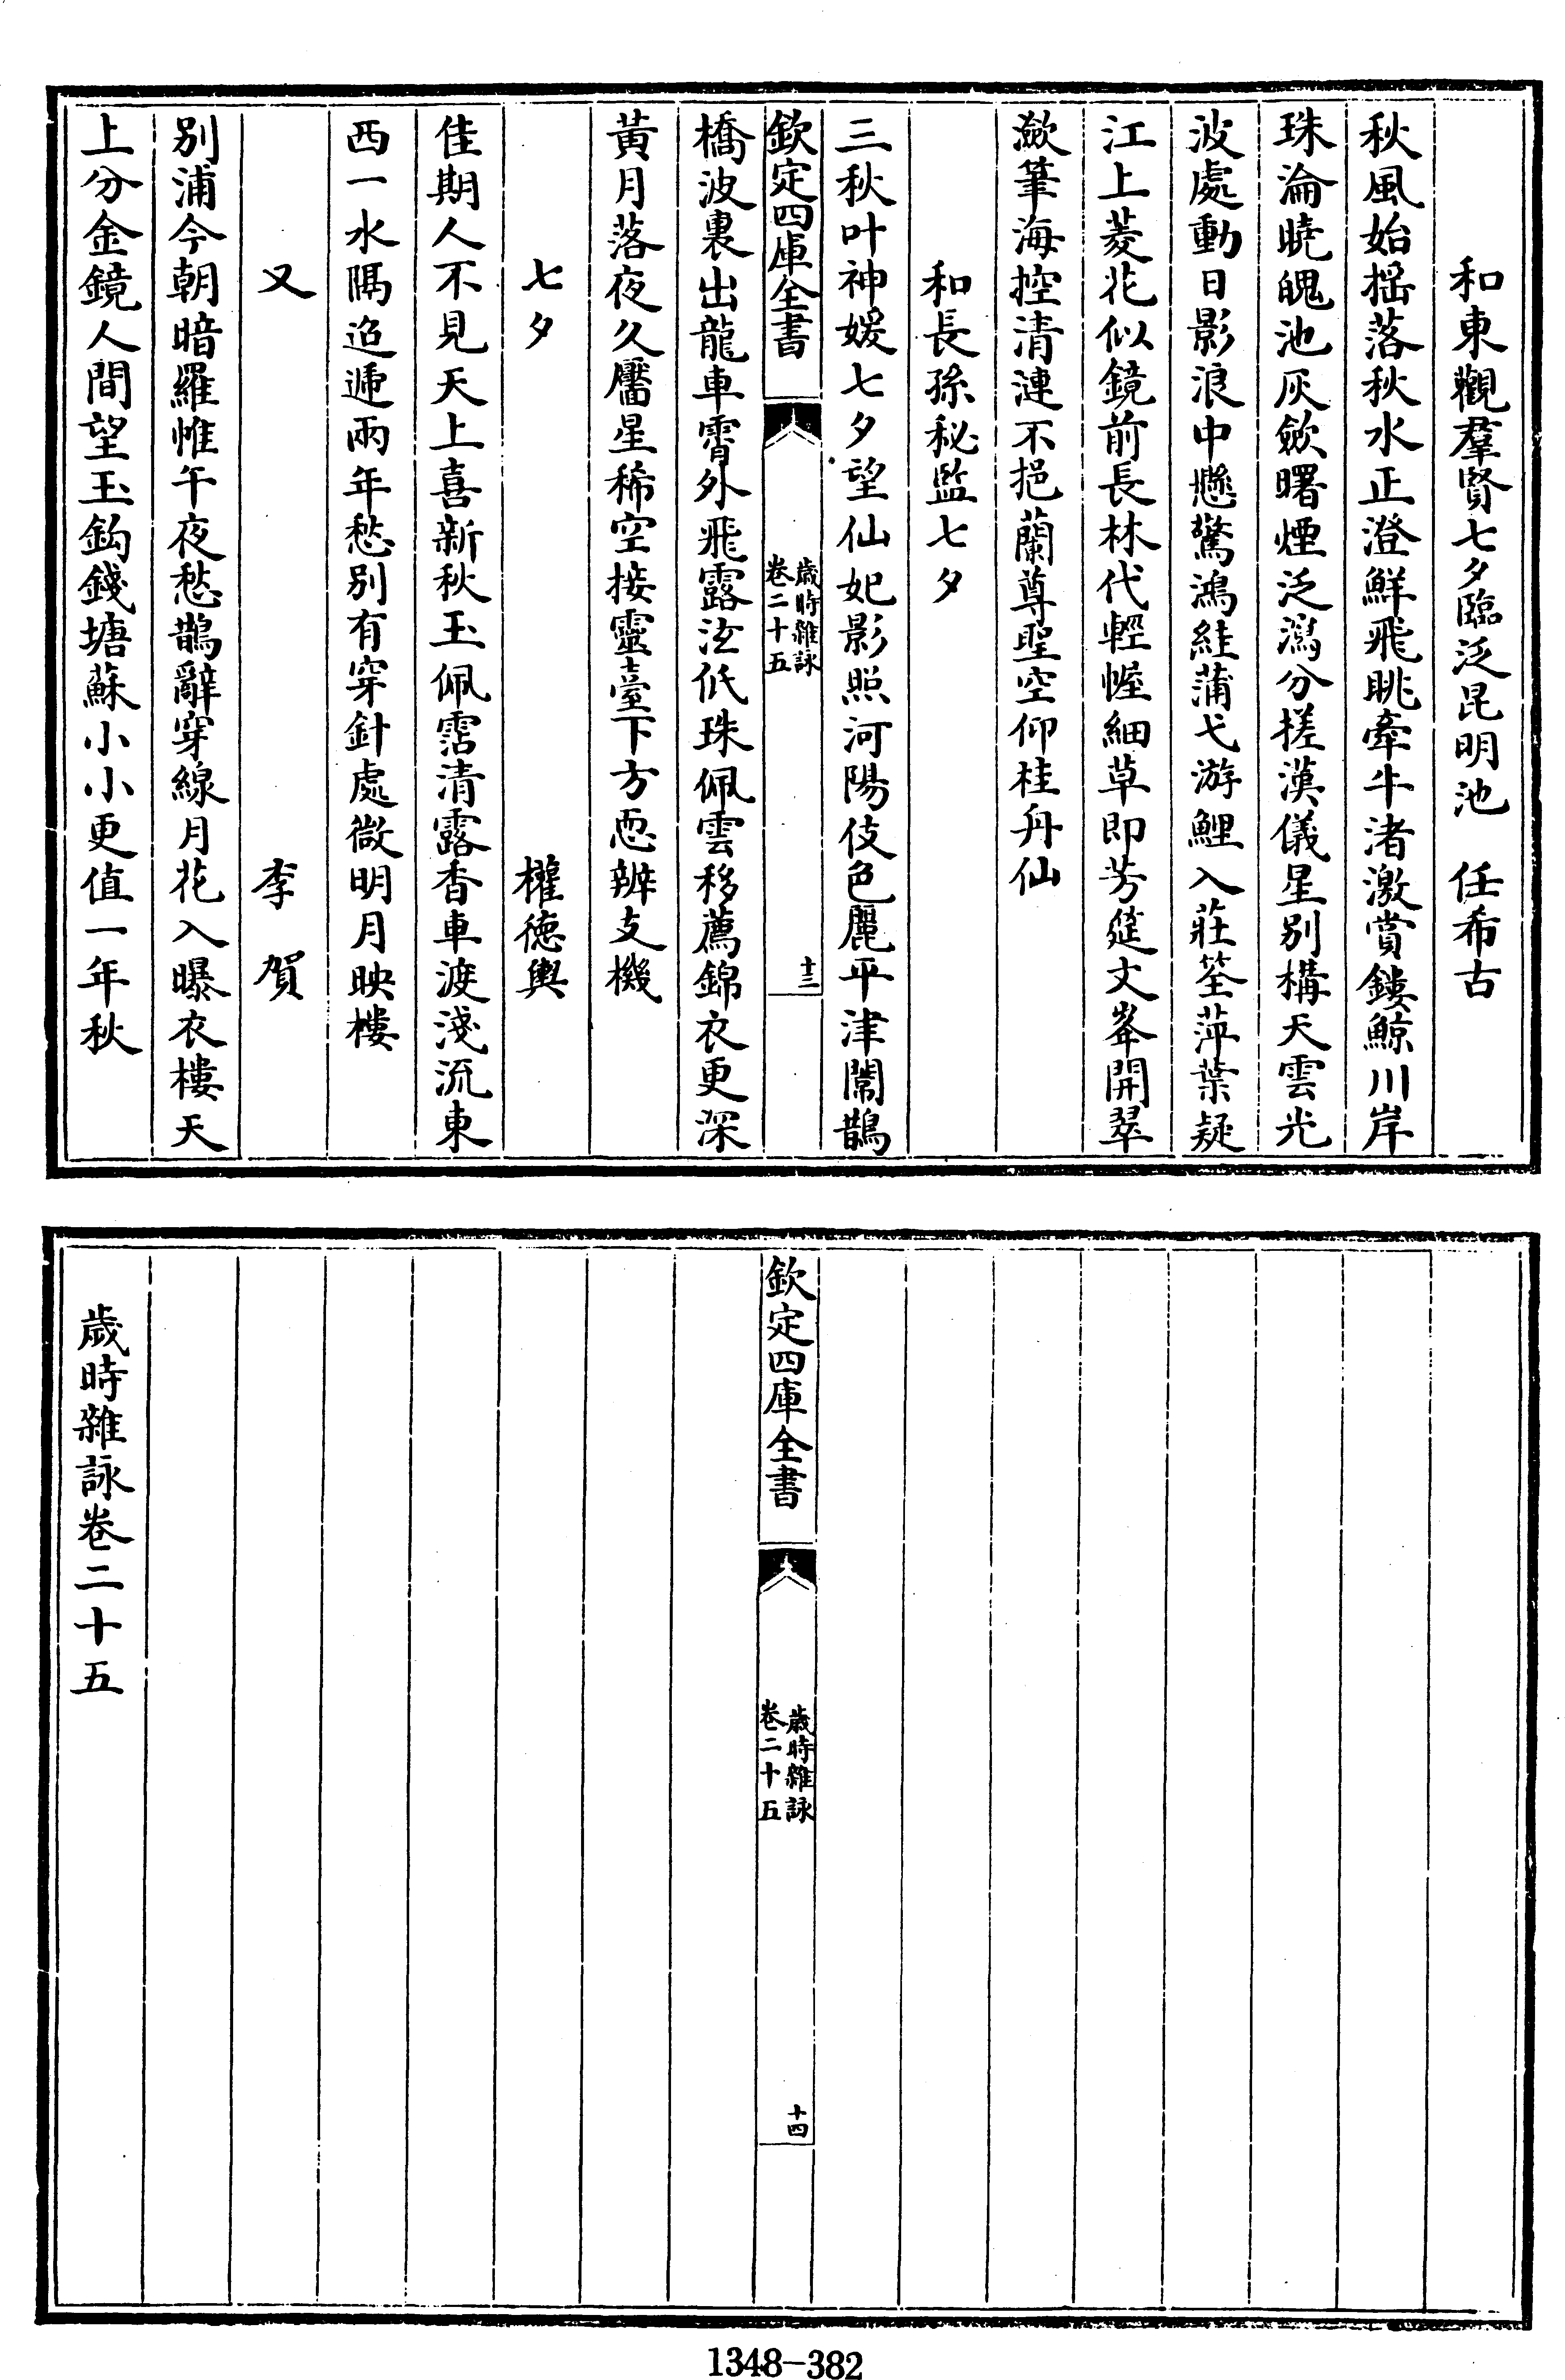 和東觀羣賢七夕臨泛昆明池 任希古
秋風始搖落秋水正澄鮮飛眺牽牛渚激賞鏤鯨川岸
珠淪曉魄池灰斂曙煙泛瀉分搓漢儀星别構天雲光
波處動日影浪中懸驚鴻絓蒲弋游鯉入莊筌萍葉疑
江上菱花似鏡前長林代輕幄細草即芳筵文峯開翠
瀲筆海控清漣不挹蘭尊聖空仰桂舟仙
和長孫秘監七夕
三秋叶神媛七夕望仙妃影照河陽伎色麗平津闈鵲
欽定四庫全書
歲時雜詠
卷二十五
十三
橋波裏出龍車霄外飛露泫低珠佩雲移薦錦衣更深
黃月落夜久靨星稀空接靈臺下方恧辨支機
七夕 權德輿
佳期人不見天上喜新秋玉佩霑清露香車渡淺流東
西一水隔迢遞兩年愁别有穿針處微明月映樓
又 李賀
别浦今朝暗羅帷午夜愁鵲辭穿線月花入曝衣樓天
上分金鏡人間望玉鈎錢塘蘇小小更值一年秋
欽定四庫全書
歲時雜詠
卷二十五
十四
歲時雜詠卷二十五
1348-382